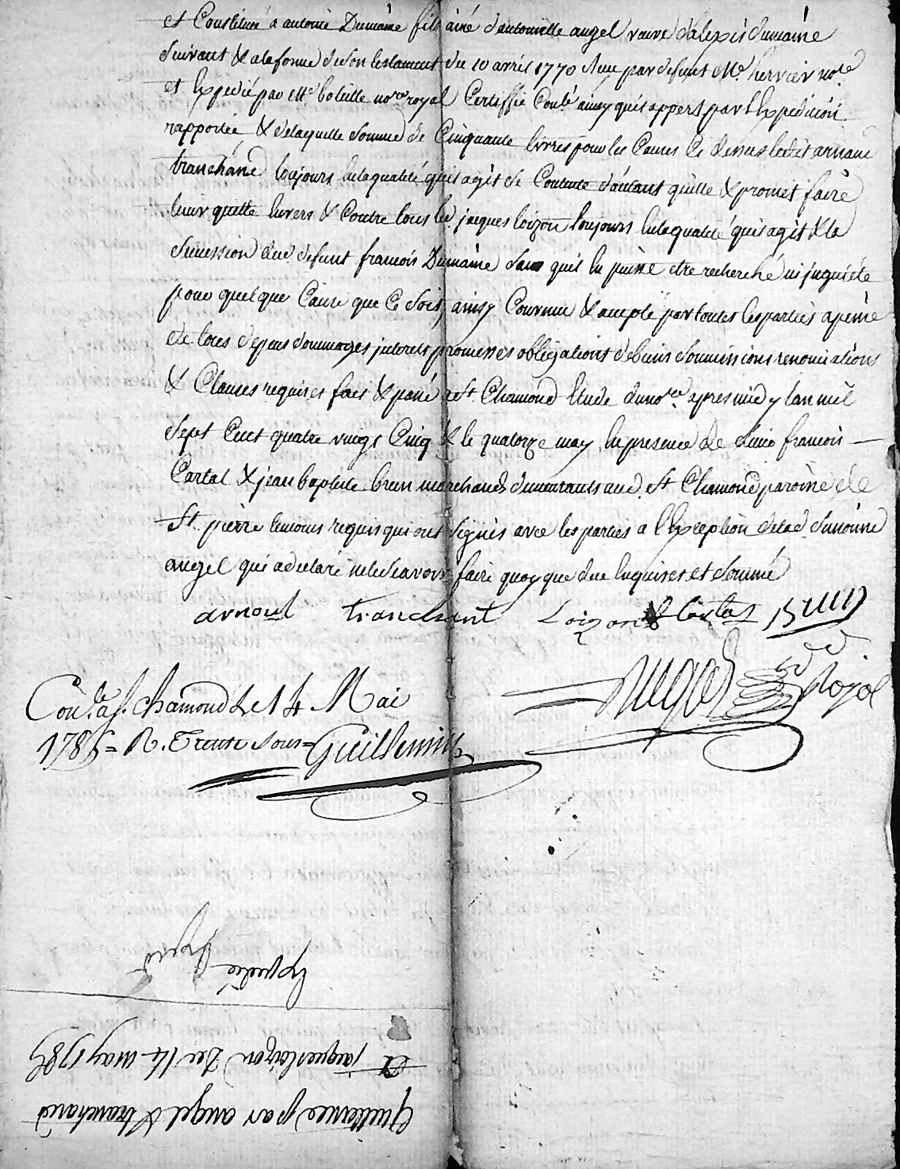 et Constitué a antoine Dumaine fils ainé d'antoinette angel veuve d'alexis dumaine
suivant & a la forme de son testament du 10 avril 1770 Reçu par defunt Me hervier nore
et Expedié par Me boteille nore royal Certiffié Conlé ainsy quil appert par l'Expedition
rapportée & de laquelle somme de Cinquante livres pour les Causes Cy dessus ledit arnaud
tranchand toujours en la qualité quil agit se Contente d'autant quitte & promet faire
tenir quitte Envers & Contre tous led jacques loizon toujours en la qualité quil agit & la
sucession dud defunt francois Dumaine sans quil En puisse etre recherché ni inquieté
pour quelque Cause que Ce soit ainsy Convenu & accepté par toutes les parties a peine
de tous depens dommages interets promesses obligations de biens soumissions renonciations
& Clauses requises fait & passé a St Chamond Etude du nore apres midy l'an mil
sept Cent quatre vingt Cinq & le quatorze may En presence de francois
Cartal & jean baptiste brun marchands demeurants aud. St Chamond paroisse de
St. pierre temoins requis qui ont signés avec les parties a l'Exception de lad
angel qui a declaré ne le scavoir faire quoy que due Enquise et sommé
arnoud tranchant Loizon Cartal Brun
Conle a St. chamond Le 14 Mai
1785 = R. Trente sous = Guillemin
Expedié
Quittance par angel & tranchand
a jacques loizon Du 14 may 1785